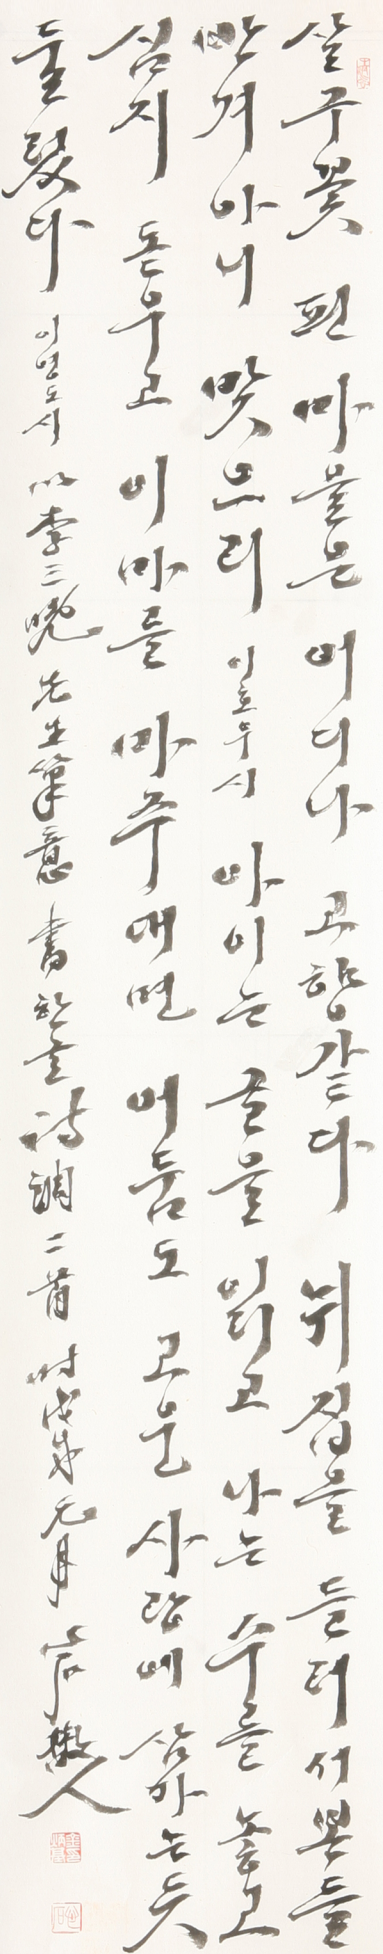 살구꽃 핀 마을은 어디나 고향 같다 뉘 집을 들어서본들
반겨 아니 맞으리 이호우시 아이는 글을 읽고 나는 수를 놓고
심지 돋우고 이마를 마주 대면 어둠도 고운 사랑에 삼가는 듯
둘렸다 이영도시 以李三晩先生筆意 書 詩調二首 時戊戌元月 人